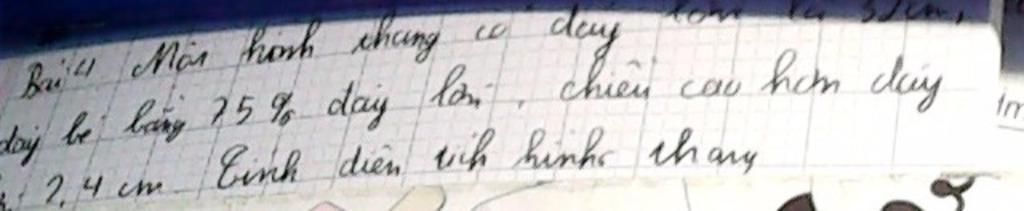 Bài 4 Một hình thang có đáy lớn là
đáy bé bằng 75% đáy lớn, chiều cao hơn đáy
2,4 cm Tính diện tích hình thang